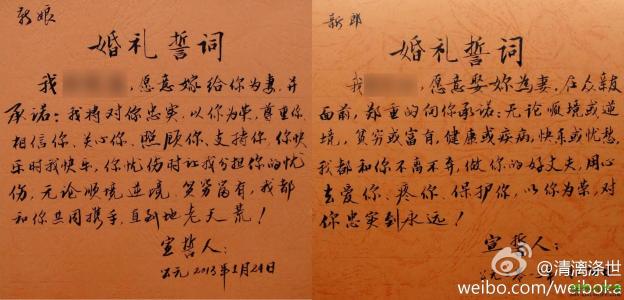 新娘
婚礼誓词
我 ，愿意嫁给你为妻，并
承诺：我将对你忠实，以你为荣，尊重你，
相信你、关心你、照顾你、支持你，你快
乐时我快乐，你忧伤时让我分担你的忧
伤，无论顺境逆境、贫穷富有，我都
和你共同携手，直到地老天荒！
宣誓人：
公元2013年1月24日
新郎
婚礼誓词
我 ，愿意娶妳为妻，在众亲友
面前，郑重的向你承诺：无论顺境或逆
境，贫穷或富有，健康或疾病，快乐或忧愁，
我都和你不离不弃，做你的好丈夫，用心
去爱你、疼你、保护你，以你为荣，对
你忠实到永远！
宣誓人：
公元
@清漓涤世
weibo.com/weiboka